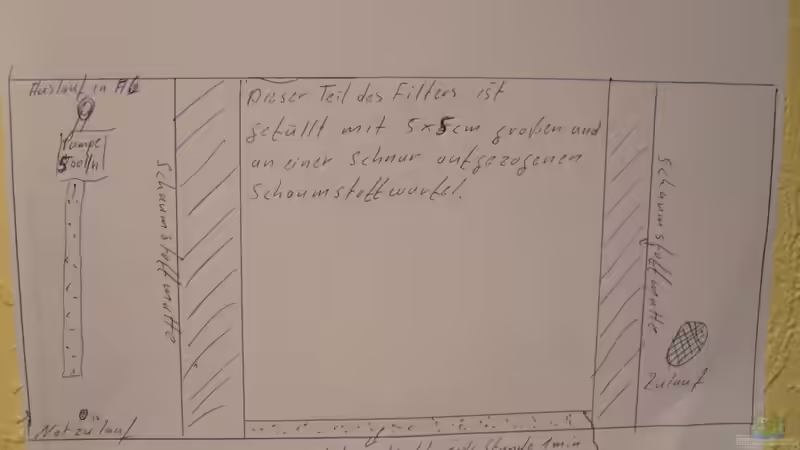 Auslauf in AQ
Pumpe
500l/h
Schaumstoffmatte
Dieser Teil des Filters ist
gefüllt mit 5x5cm großen und
an einer Schnur aufgezogenen
Schaumstoffwürfel.
Schaumstoffmatte
Zulauf
Notzulauf
Stunde 1min